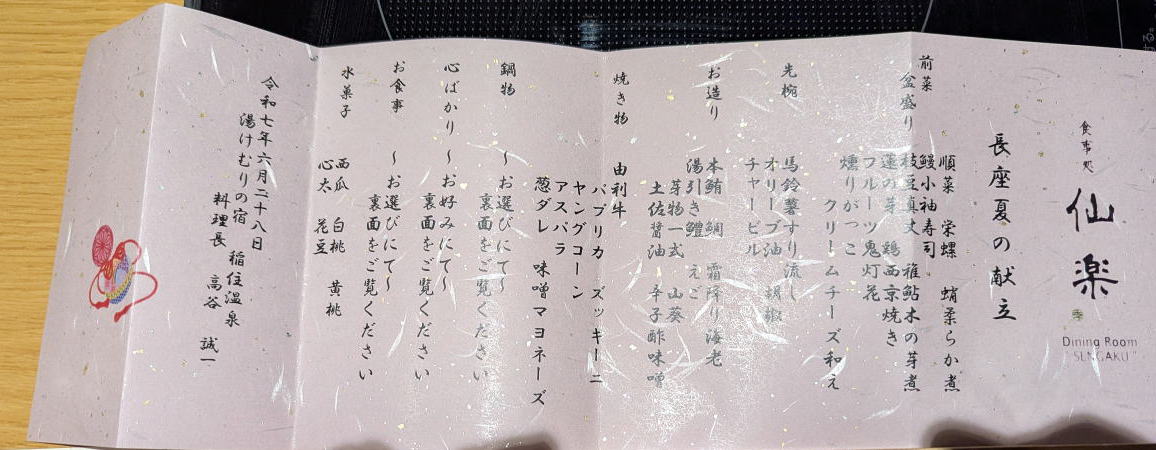 食事処
仙楽
Dining Room
"SENGAKU"
長座夏の献立
前菜
盆盛り
順菜 栄螺 蛸柔らか煮
鰻小袖寿司 稚鮎木の芽煮
枝豆真丈
蓮の芽 鶏西京焼き
フルーツ鬼灯花
燻りがっこ
クリームチーズ和え
先椀
馬鈴薯すり流し
オリーブ油 胡椒
チャービル
お造り
本鮪 鯛 霜降り海老
湯引き鱧 えご
芽物一式 山葵
土佐醤油 辛子酢味噌
焼き物
由利牛
パプリカ ズッキーニ
ヤングコーン
アスパラ
葱ダレ 味噌マヨネーズ
鍋物
～お選びにて～
裏面をご覧ください
心ばかり
～お好みにて～
裏面をご覧ください
お食事
～お選びにて～
裏面をご覧ください
水菓子
西瓜 白桃 黄桃
心太 花豆
令和七年六月二十八日
湯けむりの宿 稲住温泉
料理長 高谷 誠一
する。